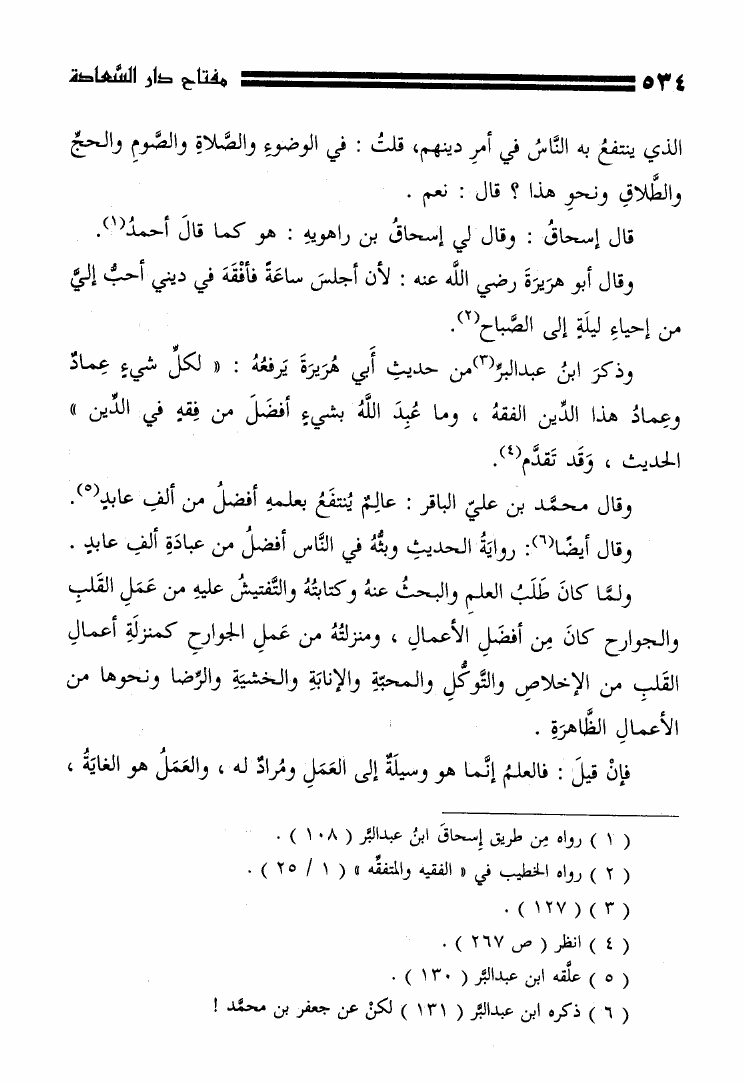 ٥٣٤ مفتاح دار السَّعادة
الذي ينتفعُ به النَّاسُ في أمرِ دينهم، قلتُ : في الوضوءِ والصَّلاةِ والصَّومِ والحجِّ
والطَّلاقِ ونحوِ هذا ؟ قال : نعم .
قال إسحاقُ : وقال لي إسحاقُ بن راهويهِ : هو كما قالَ أحمدُ(١).
وقال أبو هريَرَةَ رضي اللَّه عنه : لأن أجلسَ ساعَةً فأفْقَهَ في ديني أحبُّ إليَّ
من إحياءِ ليلَةٍ إلى الصَّباح(٢).
وذكرَ ابنُ عبدالبرِّ(٣)من حديثِ أَبي هُرَيرَةَ يَرفعُهُ : « لكلِّ شيءٍ عِمادٌ
وعِمادُ هذا الدِّين الفقهُ ، وما عُبِدَ اللَّهُ بشيءٍ أفضَلَ من فِقهٍ في الدِّين »
الحديث ، وَقَد تَقدَّم(٤).
وقال محمَّد بن عليّ الباقر : عالِمٌ يُنتفَعُ بعلمهِ أفضلُ من ألفِ عابدٍ(٥).
وقال أيضًا(٦): روايَةُ الحديثِ وبثُّهُ في النَّاس أفضلُ من عبادَةِ ألفِ عابدٍ .
ولمَّا كانَ طَلَبُ العلمِ والبحثُ عنهُ وكتابتُهُ والتَّفتيشُ عليهِ من عَمَلِ القَلبِ
والجوارح كانَ مِن أفضَلِ الأعمالِ ، ومنزلتُهُ من عَملِ الجوارحِ كمنزلَةِ أعمالِ
القَلبِ من الإخلاصِ والتَّوكُّلِ والمحبّةِ والإنابَةِ والخشيَةِ والرِّضا ونحوها من
الأعمالِ الظَّاهرَةِ .
فإنْ قيلَ : فالعلمُ إنَّما هو وسيلَةٌ إلى العَمَلِ ومُرادٌ له ، والعَمَلُ هو الغايَةُ ،
( ١ ) رواه مِن طريق إسحاقَ ابنُ عبدالبَّر ( ١٠٨ ) .
( ٢ ) رواه الخطيب في « الفقيه والمتفقِّه » ( ١ / ٢٥ ) .
( ٣ ) ( ١٢٧ ) .
( ٤ ) انظر ( ص ٢٦٧ ) .
( ٥ ) علَّقه ابن عبدالبَّر ( ١٣٠ ) .
( ٦ ) ذكره ابن عبدالبَّر ( ١٣١ ) لكنْ عن جعفر بن محمَّد !